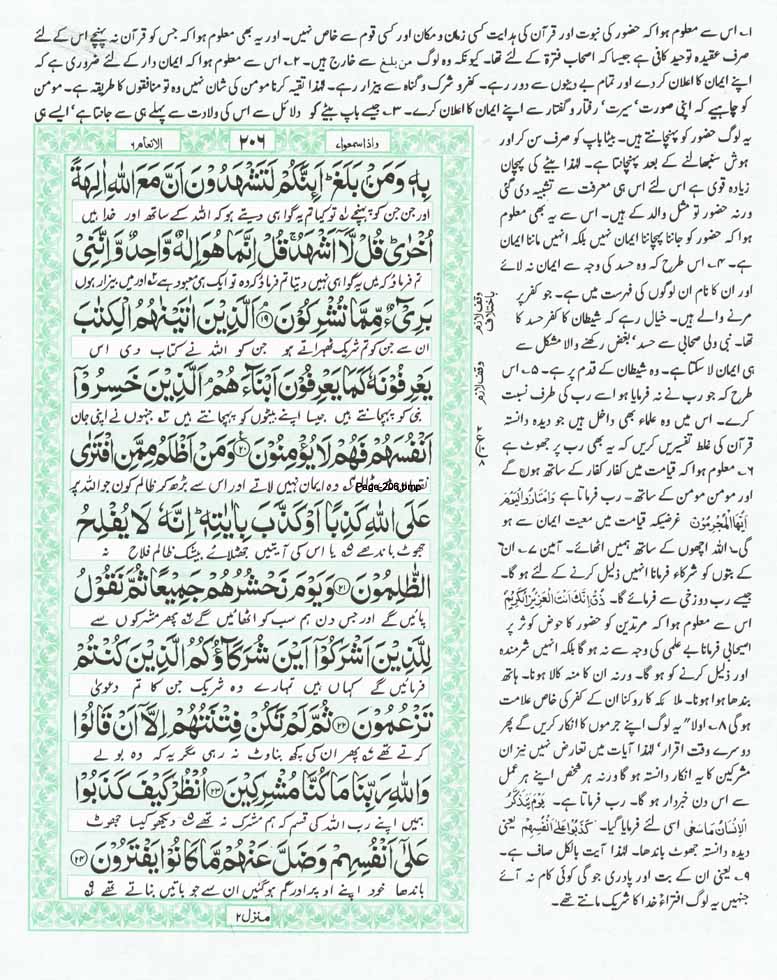 ۱۔ اس سے معلوم ہوا کہ حضور کی نبوت اور قرآن کی ہدایت کسی زمان و مکان اور کسی قوم سے خاص نہیں۔ اور یہ بھی معلوم ہوا کہ جس کو قرآن نہ پہنچے اس کے لئے
صرف عقیدہ توحید کافی ہے جیسا کہ اصحاب فترۃ کے لئے تھا۔ کیونکہ وہ لوگ من بلغ سے خارج ہیں۔ ۲۔ اس سے معلوم ہوا کہ ایمان دار کے لئے ضروری ہے کہ
اپنے ایمان کا اعلان کر دے اور تمام بے دینوں سے دور رہے۔ کفر و شرک و گناہ سے بیزار رہے۔ لہٰذا تقیہ کرنا مومن کی شان نہیں وہ تو منافقوں کا طریقہ ہے۔ مومن
کو چاہیے کہ اپنی صورت، سیرت، رفتار و گفتار سے اپنے ایمان کا اعلان کرے۔ ۳۔ جیسے باپ بیٹے کو دلائل سے اس کی ولادت سے پہلے ہی سے جانتا ہے، ایسے ہی
یہ لوگ حضور کو پہچانتے ہیں۔ بیٹا باپ کو صرف سن کر اور
ہوش سنبھالنے کے بعد پہچانتا ہے۔ لہٰذا بیٹے کی پہچان
زیادہ قوی ہے اس لئے اس ہی معرفت سے تشبیہ دی گئی
ورنہ حضور تو مثل والد کے ہیں۔ اس سے یہ بھی معلوم
ہوا کہ حضور کو جاننا پہچاننا ایمان نہیں بلکہ انہیں ماننا ایمان
ہے۔ ۴۔ اس طرح کہ وہ حسد کی وجہ سے ایمان نہ لائے
اور ان کا نام ان لوگوں کی فہرست میں ہے۔ جو کفر پر
مرنے والے ہیں۔ خیال رہے کہ شیطان کا کفر حسد کا
تھا۔ نبی ولی صحابی سے حسد، بغض رکھنے والا مشکل سے
ہی ایمان لا سکتا ہے۔ وہ شیطان کے قدم پر ہے۔ ۵۔ اس
طرح کہ جو رب نے نہ فرمایا ہو اسے رب کی طرف نسبت
کرے۔ اس میں وہ علماء بھی داخل ہیں جو دیدہ دانستہ
قرآن کی غلط تفسیریں کریں کہ یہ بھی رب پر جھوٹ ہے
۶۔ معلوم ہوا کہ قیامت میں کفار کفار کے ساتھ ہوں گے
اور مومن مومن کے ساتھ۔ رب فرماتا ہے وَامْتَازُوا الْيَوْمَ
اَيُّهَا الْمُجْرِمُوْنَ غرضیکہ قیامت میں معیت ایمان سے ہو
گی۔ اللہ اچھوں کے ساتھ ہمیں اٹھائے۔ آمین ۷۔ ان
کے بتوں کو شرکاء فرمانا انہیں ذلیل کرنے کے لئے ہو گا۔
جیسے رب دوزخی سے فرمائے گا۔ ذُقْ اِنَّكَ اَنْتَ الْعَزِيْزُ الْكَرِيْمُ
اس سے معلوم ہوا کہ مرتدین کو حضور کا حوض کوثر پر
اصیحابی فرمانا بے علمی کی وجہ سے نہ ہو گا بلکہ انہیں شرمندہ
اور ذلیل کرنے کو ہو گا۔ ورنہ ان کا منہ کالا ہونا۔ ہاتھ
بندھا ہوا ہونا۔ ملائکہ کا روکنا ان کے کفر کی خاص علامت
ہو گی ۸۔ اولاً یہ لوگ اپنے جرموں کا انکار کریں گے پھر
دوسرے وقت اقرار، لہٰذا آیات میں تعارض نہیں نیز ان
مشرکین کا یہ انکار دانستہ ہو گا ورنہ ہر شخص اپنے ہر عمل
سے اس دن خبردار ہو گا۔ رب فرماتا ہے۔ يَوْمَ يَتَذَكَّرُ
الْاِنْسَانُ مَا سَعٰى اسی لئے فرمایا گیا۔ كَذَبُوْا عَلٰى اَنْفُسِهِمْ یعنی
دیدہ دانستہ جھوٹ باندھا۔ لہٰذا آیت بالکل صاف ہے۔
۹۔ یعنی ان کے بت اور پادری جوگی کوئی کام نہ آئے
جنہیں یہ لوگ افتراءً خدا کا شریک مانتے تھے۔
وقف لازم باختلاف
وقف لازم
واذا سمعوا ۷
۲۰۶
الانعام ۶
بِهٖ وَمَنْۢ بَلَغَ ؕ اَئِنَّكُمْ لَتَشْهَدُوْنَ اَنَّ مَعَ اللّٰهِ اٰلِهَةً
اور جن جن کو پہنچے ۱ تو کیا تم یہ گواہی دیتے ہو کہ اللہ کے ساتھ اور خدا ہیں
اُخْرٰى ؕ قُلْ لَّاۤ اَشْهَدُ ۚ قُلْ اِنَّمَا هُوَ اِلٰهٌ وَّاحِدٌ وَّاِنَّنِيْ
تم فرماؤ کہ میں یہ گواہی نہیں دیتا تم فرماؤ کہ وہ تو ایک ہی معبود ہے اور میں بیزار ہوں
بَرِيْٓءٌ مِّمَّا تُشْرِكُوْنَ ۟۱۹ اَلَّذِيْنَ اٰتَيْنٰهُمُ الْكِتٰبَ
ان سے جن کو تم شریک ٹھہراتے ہو جن کو اللہ نے کتاب دی اس
يَعْرِفُوْنَهٗ كَمَا يَعْرِفُوْنَ اَبْنَآءَهُمْ ۘ اَلَّذِيْنَ خَسِرُوْۤا
نبی کو پہچانتے ہیں جیسا اپنے بیٹوں کو پہچانتے ہیں ۳ جنہوں نے اپنی جان
اَنْفُسَهُمْ فَهُمْ لَا يُؤْمِنُوْنَ ۟۲۰ وَمَنْ اَظْلَمُ مِمَّنِ افْتَرٰى
وہ ایمان نہیں لاتے اور اس سے بڑھ کر ظالم کون جو اللہ پر
Page-206.bmp
عَلَى اللّٰهِ كَذِبًا اَوْ كَذَّبَ بِاٰيٰتِهٖ ؕ اِنَّهٗ لَا يُفْلِحُ
جھوٹ باندھے ۵ یا اس کی آیتیں جھٹلائے بیشک ظالم فلاح نہ
الظّٰلِمُوْنَ ۟۲۱ وَيَوْمَ نَحْشُرُهُمْ جَمِيْعًا ثُمَّ نَقُوْلُ
پائیں گے اور جس دن ہم سب کو اٹھائیں گے ۶ پھر مشرکوں سے
لِلَّذِيْنَ اَشْرَكُوْۤا اَيْنَ شُرَكَآؤُكُمُ الَّذِيْنَ كُنْتُمْ
فرمائیں گے کہاں ہیں تمہارے وہ شریک جن کا تم دعویٰ
تَزْعُمُوْنَ ۟۲۲ ثُمَّ لَمْ تَكُنْ فِتْنَتُهُمْ اِلَّاۤ اَنْ قَالُوْا
کرتے تھے ۷ پھر ان کی کچھ بناوٹ نہ رہی مگر یہ کہ وہ بولے
وَاللّٰهِ رَبِّنَا مَا كُنَّا مُشْرِكِيْنَ ۟۲۳ اُنْظُرْ كَيْفَ كَذَبُوْا
ہمیں اپنے رب اللہ کی قسم کہ ہم مشرک نہ تھے ۸ دیکھو کیسا جھوٹ
عَلٰۤى اَنْفُسِهِمْ وَضَلَّ عَنْهُمْ مَّا كَانُوْا يَفْتَرُوْنَ ۟۲۴
باندھا خود اپنے اوپر اور گم ہو گئیں ان سے جو باتیں بناتے تھے ۹
منزل ۲